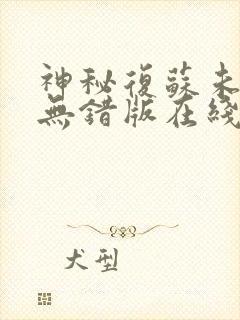 神秘復蘇未
無錯版在綫
犬型